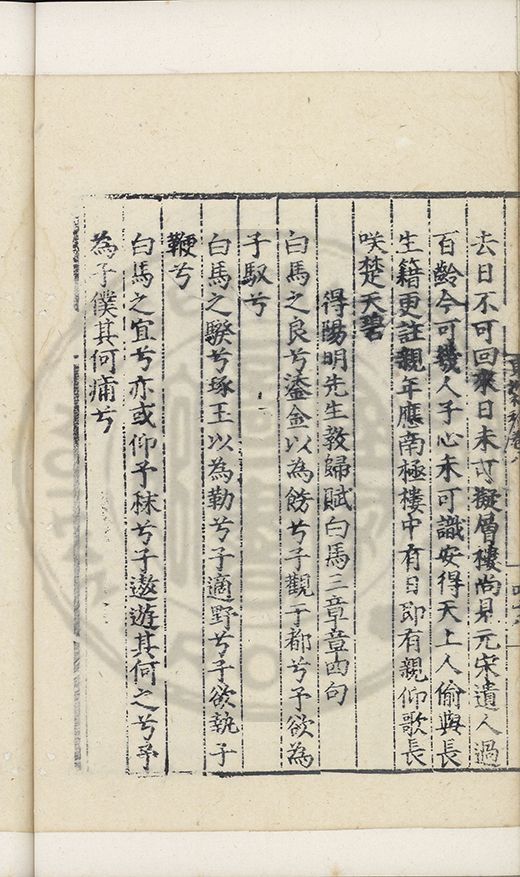 去日不可回來日未可擬層樓尚見元宋遺人過
百齡今可幾人子心未可識安得天上人偷與長
生籍更註親年應南極樓中有日即有親仰歌長
咲楚天碧
得陽明先生教歸賦白馬三章章四句
白馬之良兮鎏金以為飭兮子觀于都兮予欲為
子馭兮
白馬之騤兮琢玉以為勒兮子適野兮予欲執子
鞭兮
白馬之宜兮亦或仰予秣兮子遨遊其何之兮予
為子僕其何痡兮